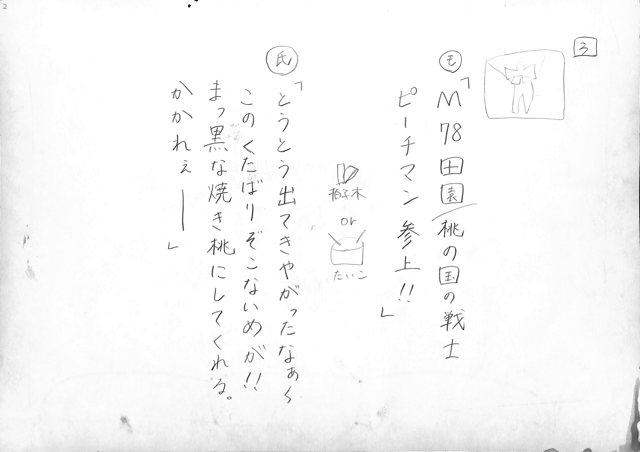 3
モ「M78田園桃の国の戦士
ピーチマン参上!!」
拍子木
or
たいこ
氏「とうとう出てきやがったなぁ〜
このくたばりぞこないめが!!
まっ黒な焼き桃にしてくれる。
かかれぇー」
2